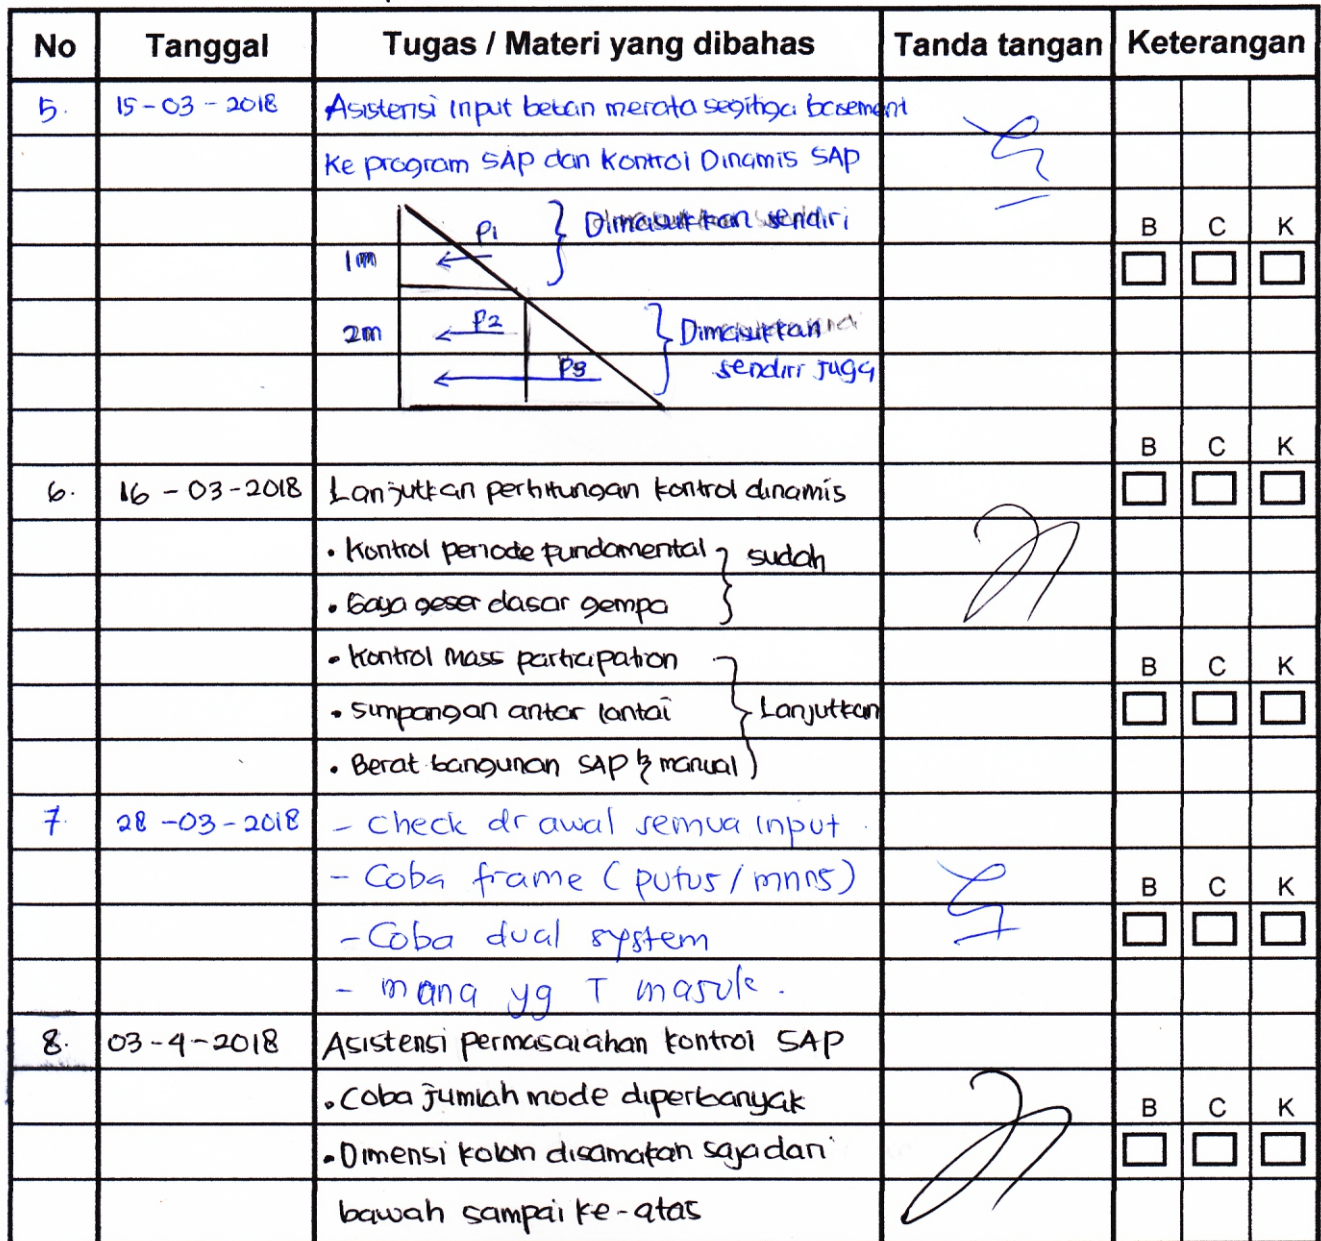 No Tanggal Tugas / Materi yang dibahas Tanda tangan Keterangan
5. 15-03-2018 Asistensi input beban merata segitiga basement
Ke program SAP dan Kontrol Dinamis SAP
P1 } Dimasukkan sendiri
B C K
1m
P2
2m } Dimasukkan
P3 sendiri juga
B C K
6. 16-03-2018 Lanjutkan perhitungan kontrol dinamis
• Kontrol periode fundamental } sudah
• Gaya geser dasar gempa
• Kontrol mass participation
B C K
• simpangan antar lantai } Lanjutkan
• Berat bangunan SAP & manual
7. 28-03-2018 - check dr awal semua input
- Coba frame (putus / mnns)
B C K
- Coba dual system
- mana yg T masuk.
8. 03-4-2018 Asistensi permasalahan kontrol SAP
• Coba jumlah mode diperbanyak
B C K
• Dimensi kolom disamakan saja dari
bawah sampai ke-atas